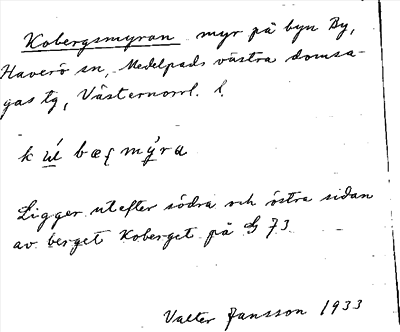 Kobergsmyran myr på byn By,
Haverö sn, Medelpads västra domsa-
gas tg, Västernorrl. l.
k bæ mýra
Ligger utefter södra och östra sidan
av berget Koberget på G 73
Valter Jansson 1933